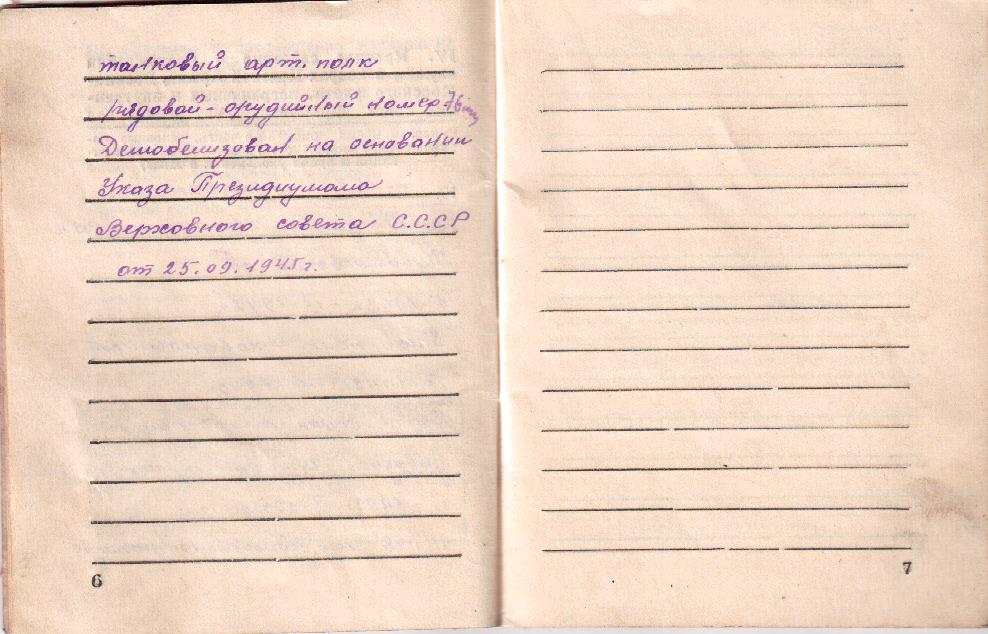 танковый арт. полк
рядовой - орудийный номер 76 мм
Демобелизован на основании
Указа Президиумома
Верховного совета С.С.С.Р
от 25.09.1945г.
6
7